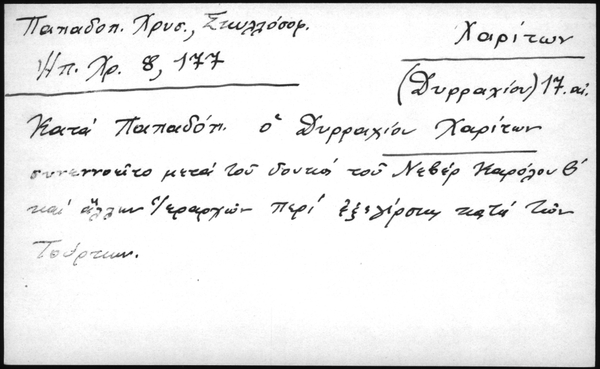 Παπαδοπ. Χρυσ., Σκυλλόσοφ.
Ἠπ. Χρ. 8, 177
Χαρίτων
(Δυρραχίου) 17. αἰ.
Κατά Παπαδόπ. ὁ Δυρραχίου Χαρίτων
συνεννοεῖτο μετά τοῦ δουκός τοῦ Νεβέρ Καρόλου Β΄
καί ἄλλων Ἱεραρχῶν περί ἐξεγέρσεως κατά τῶν
Τούρκων.